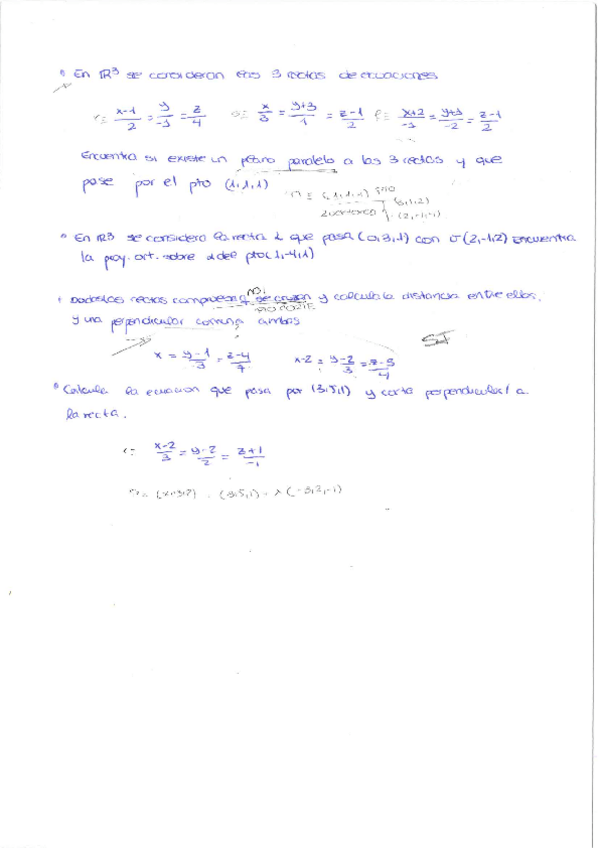 En IR³ se consideran las 3 rectas de ecuaciones
r≡ x-1/2 = y/-1 = z/4   s≡ x/3 = y+3/1 = z-1/2   t≡ x+2/-1 = y+1/-2 = z-1/2
Encuentra si existe un plano paralelo a las 3 rectas y que
pase por el pto (1,1,1)
En IR³ se considera la recta r que pasa (0,3,1) con v(2,-1,2) Encuentra
la proy. ort. sobre r del pto(1,-4,1)
Dadas las rectas comprueba se cruzan y calcula la distancia entre ellas,
y una perpendicular común a ambas
x = y-1/3 = z-4/7   x-2 = y-2/3 = z-5/4
Calcula la ecuacion que pasa por (3,5,1) y corta perpendicular/ a
la recta.
r≡ x-2/3 = y-2/2 = z+1/-1